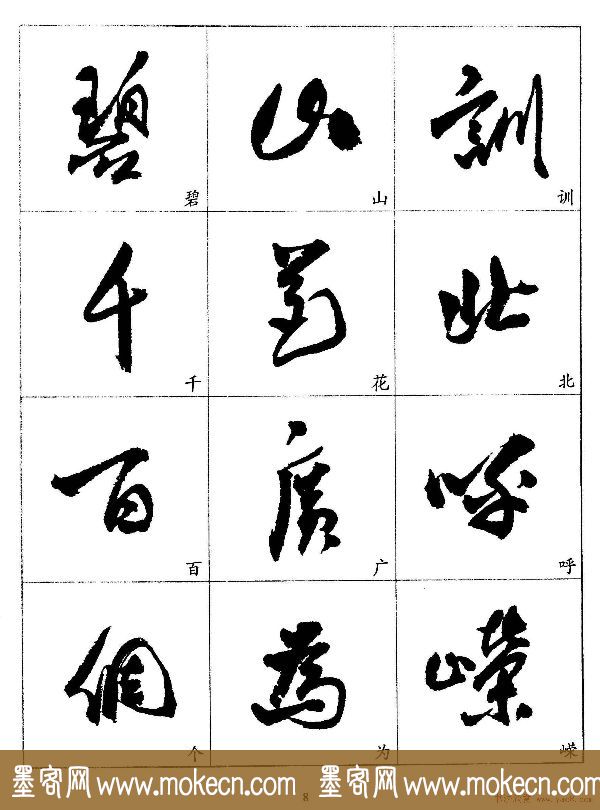 訓
训
北
北
呼
呼
嶸
嵘
山
山
花
花
廣
广
為
为
碧
碧
千
千
百
百
個
个
墨客网 www.mokecn.com 墨客网 www.mokecn.com
8